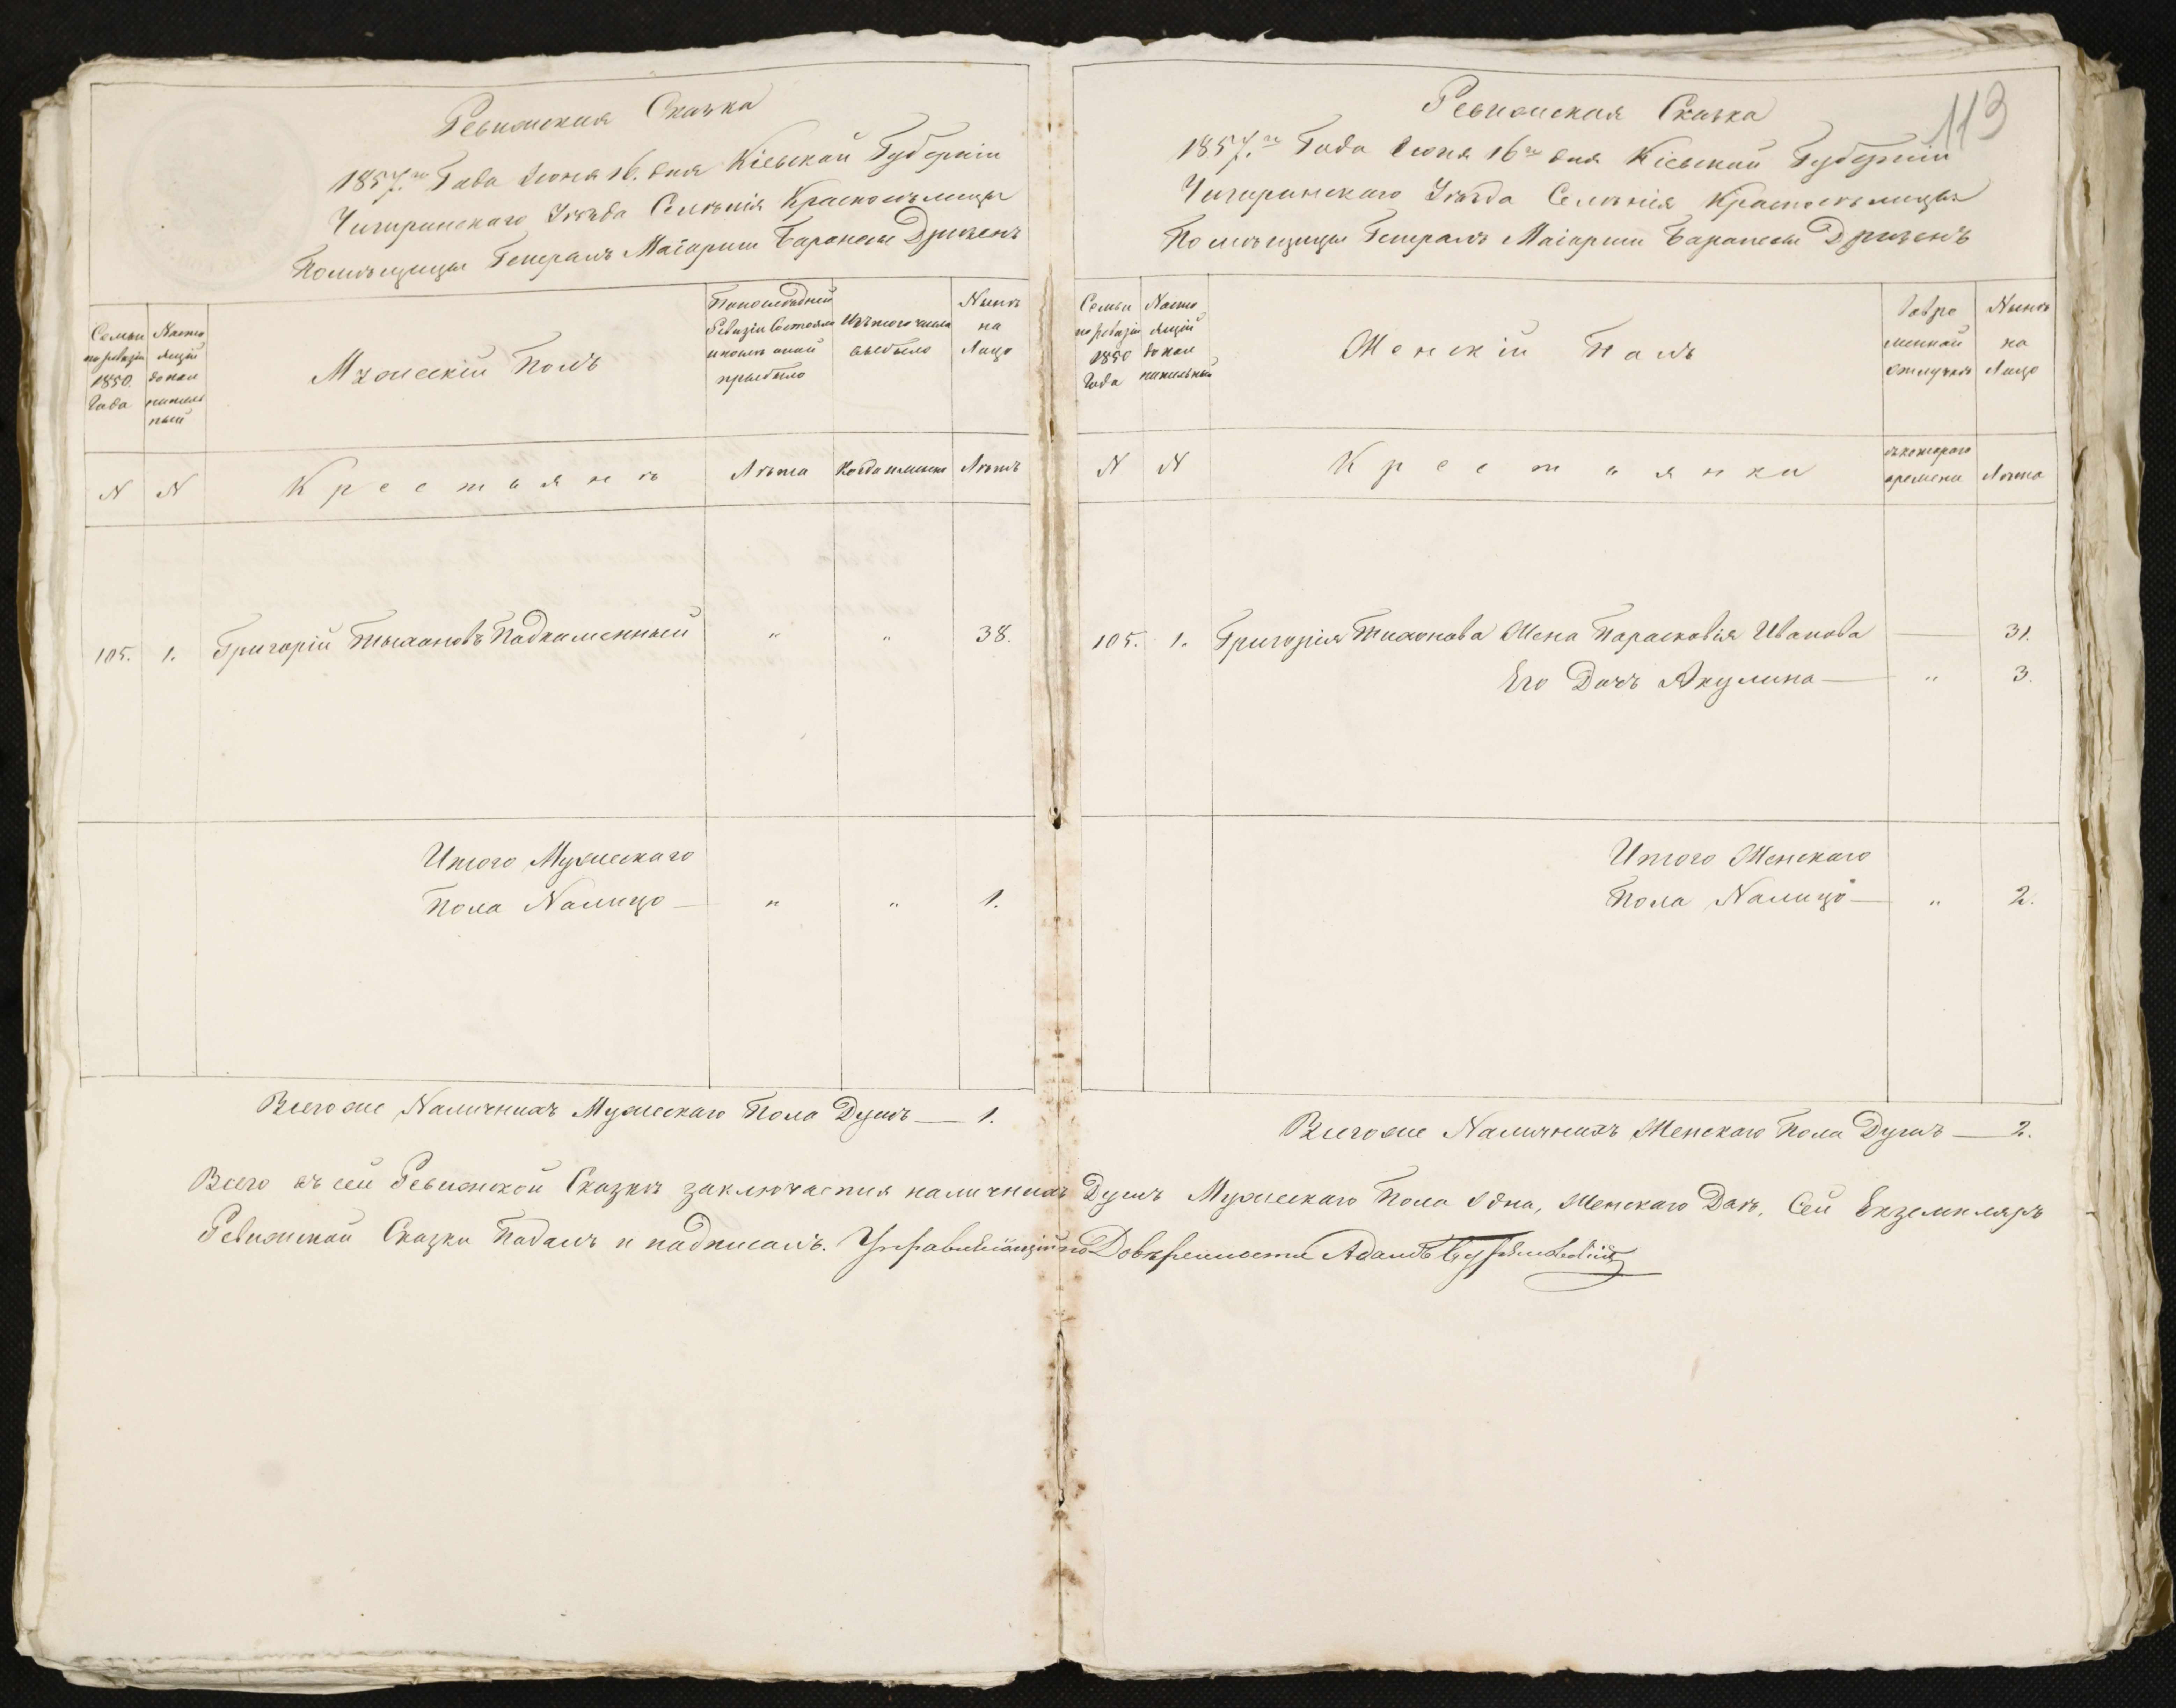 Ревижская Сказка
1857.го Года Июня 16. дня Кіевской Губерніи
Чигиринскаго Уѣзда Селенія Красносѣлицы
Помѣщицы Генералъ Маіорши Баронесы Дризенъ
Семьи по ревизіи 1850. Года
Насто ящій допол нитель ный
Мужескій Полъ
По последней Ревизіи Состояло и после оной прыбыло
Изъ того числа выбыло
Нынѣ на Лицо
N
N
Крестьянѣ
Лѣта
Когда именно
Лѣтъ
105. 1. Григорій Тыхановъ Падкаменный " " 38.
Итого Мужескаго
Пола Налицо — " " 1.
Всего же Наличныхъ Мужескаго Пола Душъ — 1.
113
Ревижская Сказка
1857.го Года Июня 16го дня Кіевской Губерніи
Чигиринскаго Уѣзда Селѣнія Красносѣлицы
Помѣщицы Генералъ Маіорши Баронесы Дризенъ
Семьи по ревизіи 1850 Года
Насто ящій допол нительный
Женскій Полъ
Во вре менной отлучкѣ
Нынѣ на Лицо
N
N
Крестьянки
съ котораго времени
Лѣта
105. 1. Григорія Тихонова Жена Парасковія Иванова — 31.
Его Дочь Акулина — " 3.
Итого Женскаго
Пола Налицо — " 2.
Всего же Наличныхъ Женскаго Пола Душъ — 2.
Всего въ сей Ревижской Сказкѣ заключается наличныхъ Душъ Мужескаго Пола Одна, Женскаго Двѣ, Сей Екземпляръ
Ревижской Сказки Подалъ и подписалъ. Управляющій по Довѣренности Адамъ